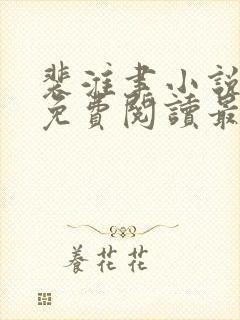 裴淮書小說
免費閱讀最
養花花